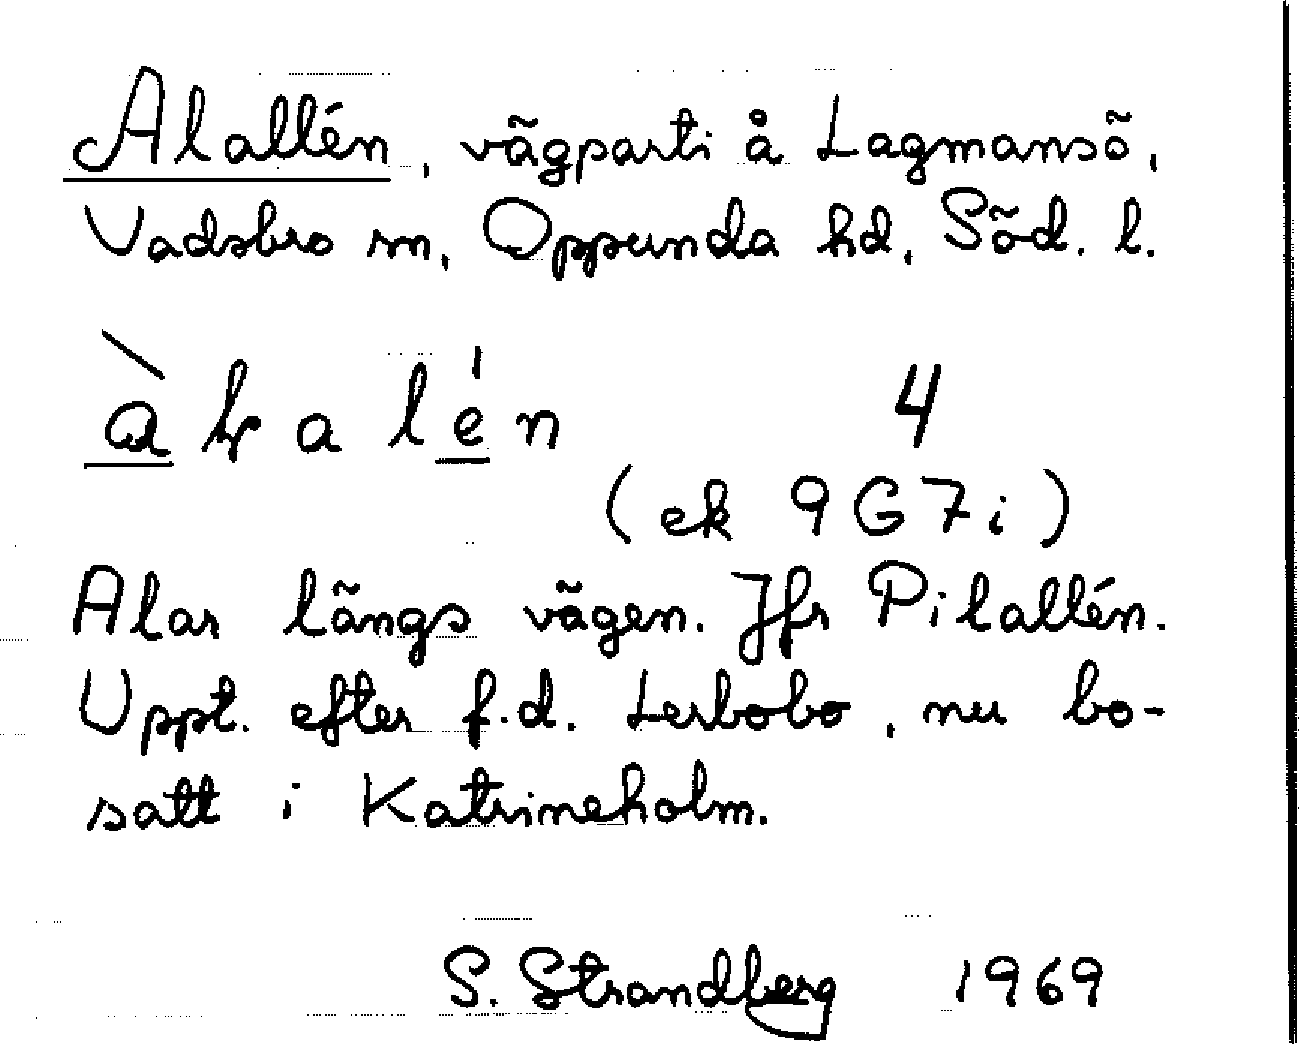 Alallén, vägparti å Lagmansö,
Vadsbro sn, Oppunda hd, Söd. l.
4
(ek 9G7i)
Alar längs vägen. Jfr Pilallén.
Uppt. efter f.d. Lerbobo, nu bo-
satt i Katrineholm.
S. Strandberg 1969